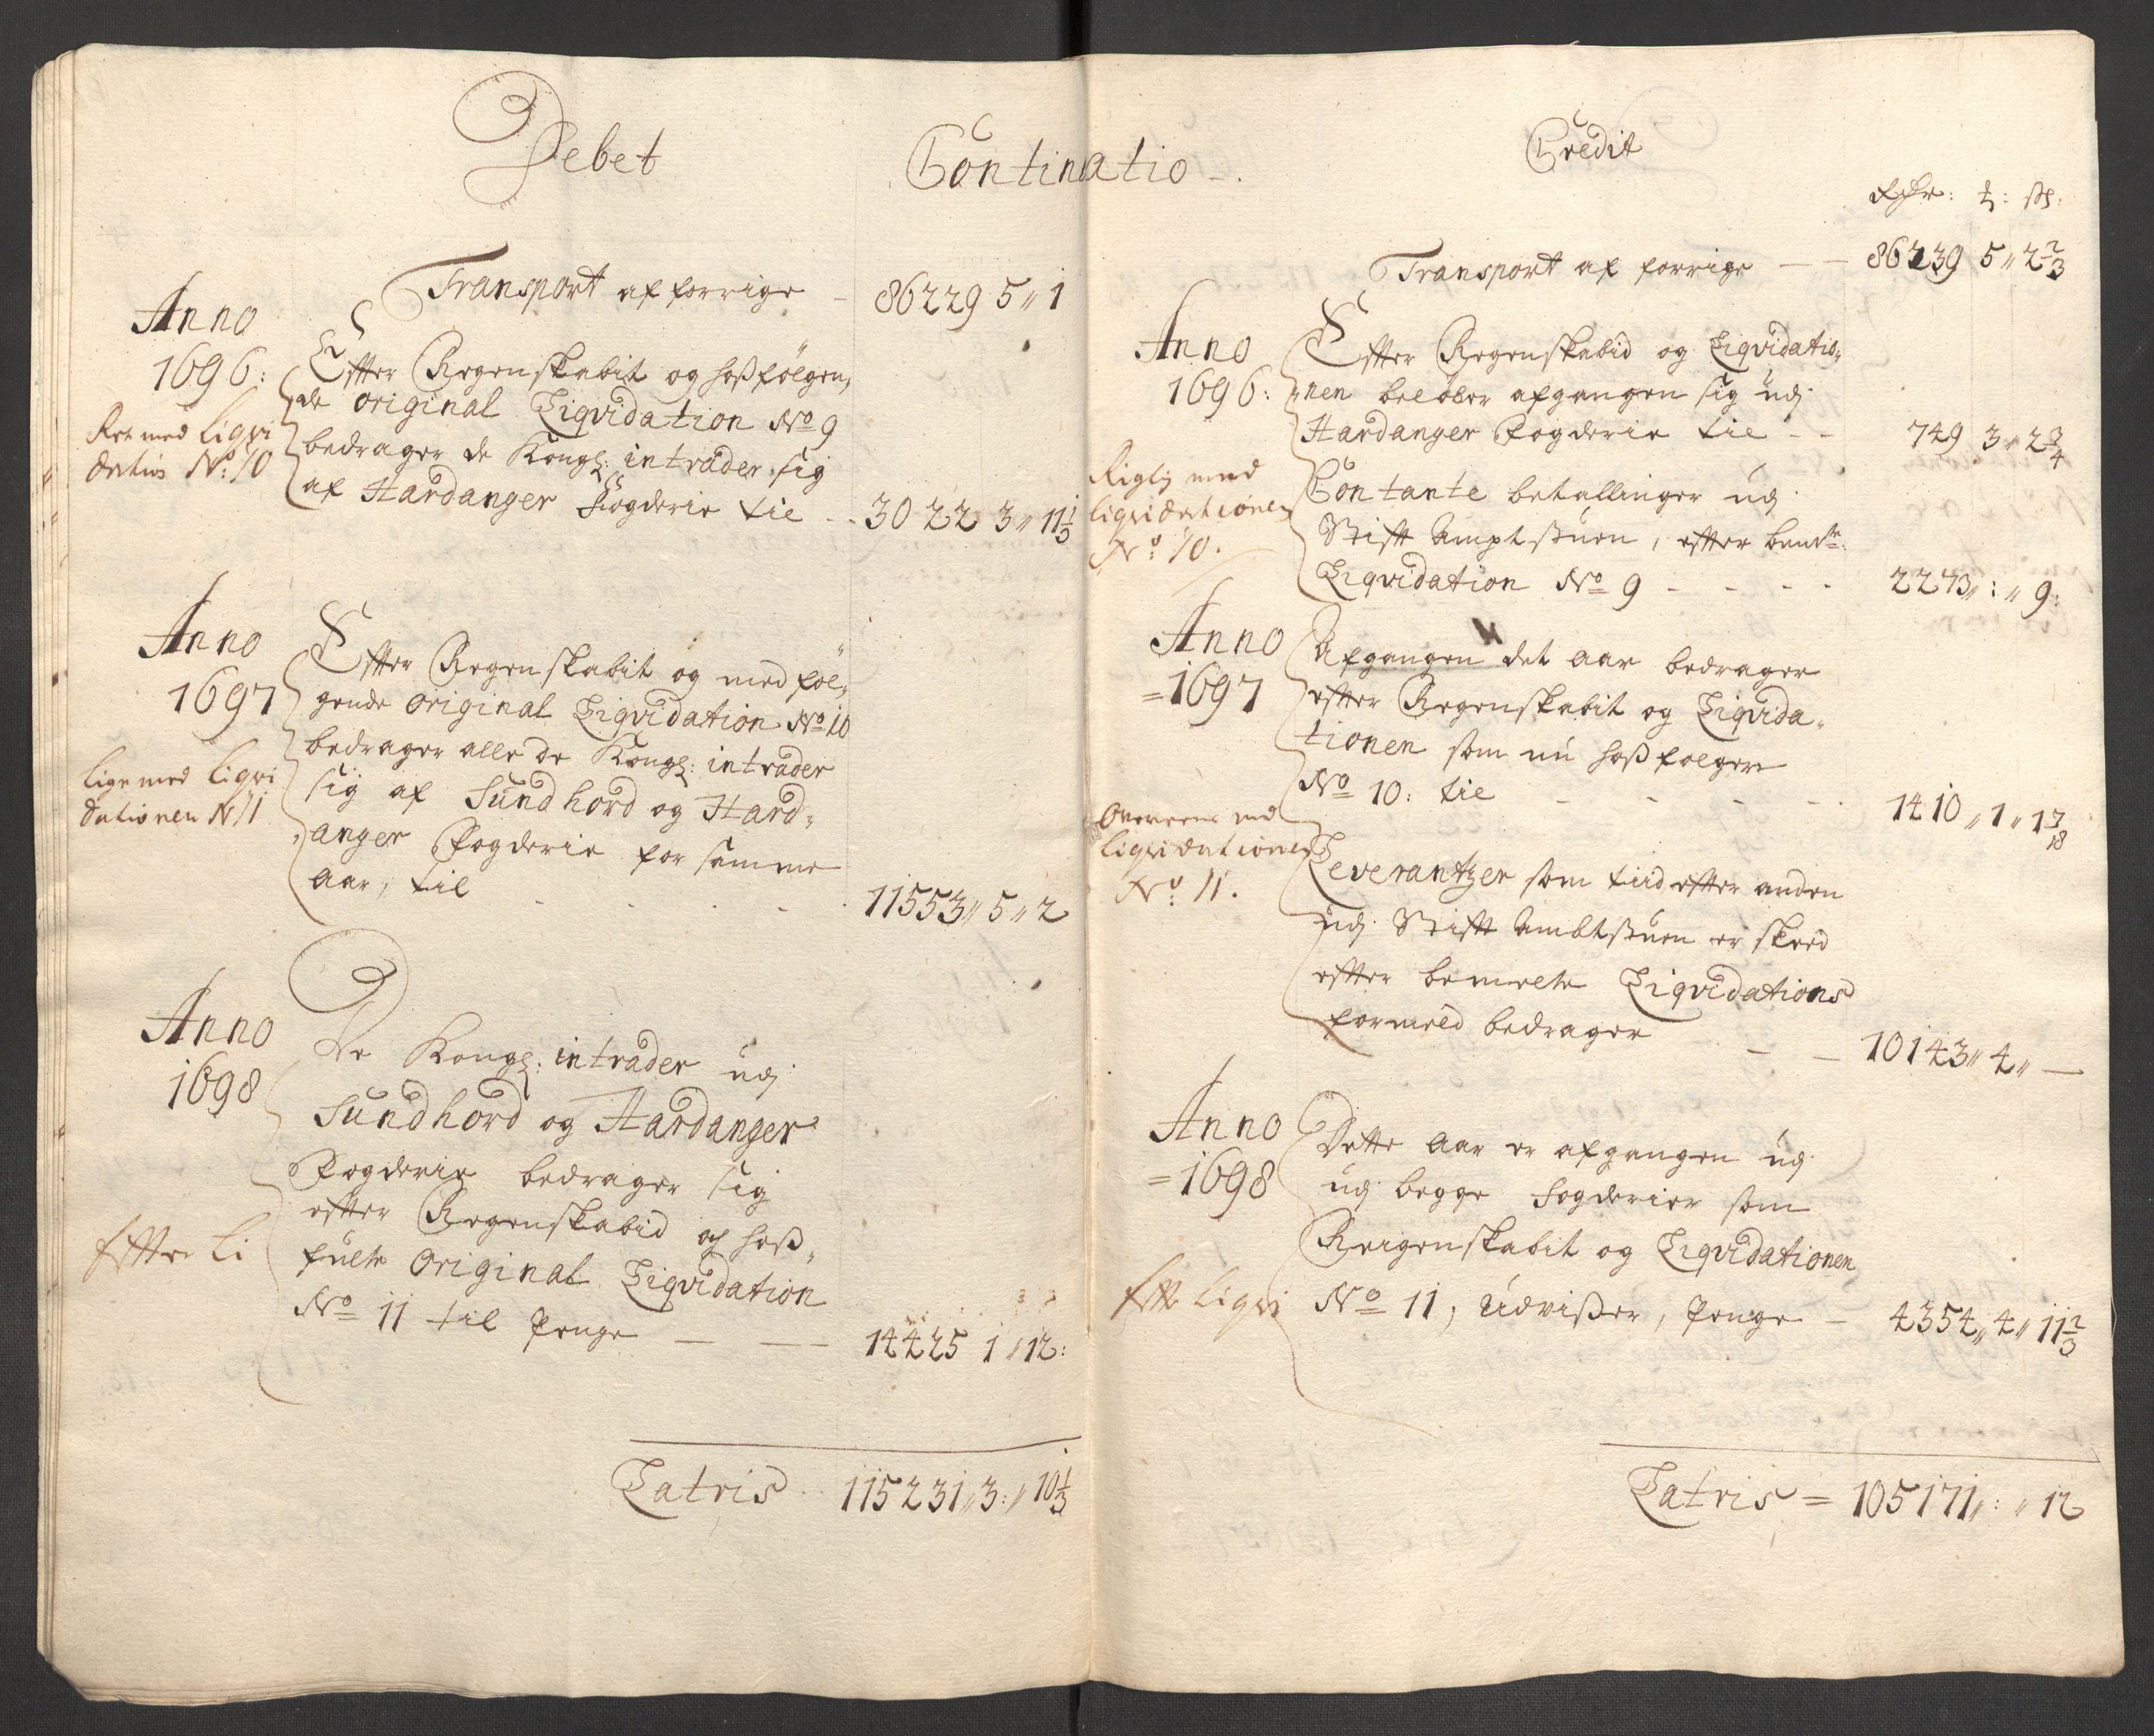 Debet
Continuatio
Transport af forrige — 86229 5 〃 1
Anno
1696:
Efter Regenskabit og hoßfölgen,
de original Liqvidation No 9
bedrager de Kongl: intrader sig
af Hardanger Fogderie til - - 3022 3 〃 11 1/3
Ret med Liqvi
dation No: 10
Anno
1697
Efter Regenskabit og medföl,
gende original Liqvidation No 10
bedrager alle de Kongl: intrader
sig af Sundhord og Hard,
anger Fogderie for samme
Aar, til - - - - 11553 〃 5 〃 2
Lige med Liqvi
dationen N 11
Anno
1698
De Kongl: intrader udj
Sundhord og Hardanger
Fogderie bedrager sig
efter Regenskabid og hoß,
fulte Original Liqvidation
No 11 til Penge — — 14425 1 〃 12:
Efter Li
Latris 115231 〃 3: 〃 10 1/3
Credit
Rdr: : ß:
Transport af forrige — — 86239 5 〃 2 2/3
Anno
1696:
Efter Regenskabid og Liqvidatio,
nen belöber afgangen sig udj
Hardanger Fogderie til - - 749 3 〃 2 3/4
Contante betallinger udj
Stift Amptstuen, efter bemte
Liqvidation No 9 - - - - 2273 〃 : 〃 9:
Rigtig med
liqvidationen
No: 10.
Anno
=1697
Afgangen det Aar bedrager
efter Regenskabit og Liqvida-
tionen som nu hoßfolger
No 10: til - - - - 1410 〃 1 〃 1 7/18
Leverantzer som tiid efter anden
udj Stift Ambtstuen er skeed
efter bemelte Liqvidations
formeld bedrager — — 10143 〃 4 〃 —
Overeens med
liqvidationen
No: 11.
Anno
=1698
Dette Aar er afgangen udj
udj begge Fogderier som
Reigenskabit og Liqvidationen
No 11, Udvißer, Penge — 4354 〃 4 〃 11 2/3
Efte Liqvi
Latris = 105171 〃 : 〃 12